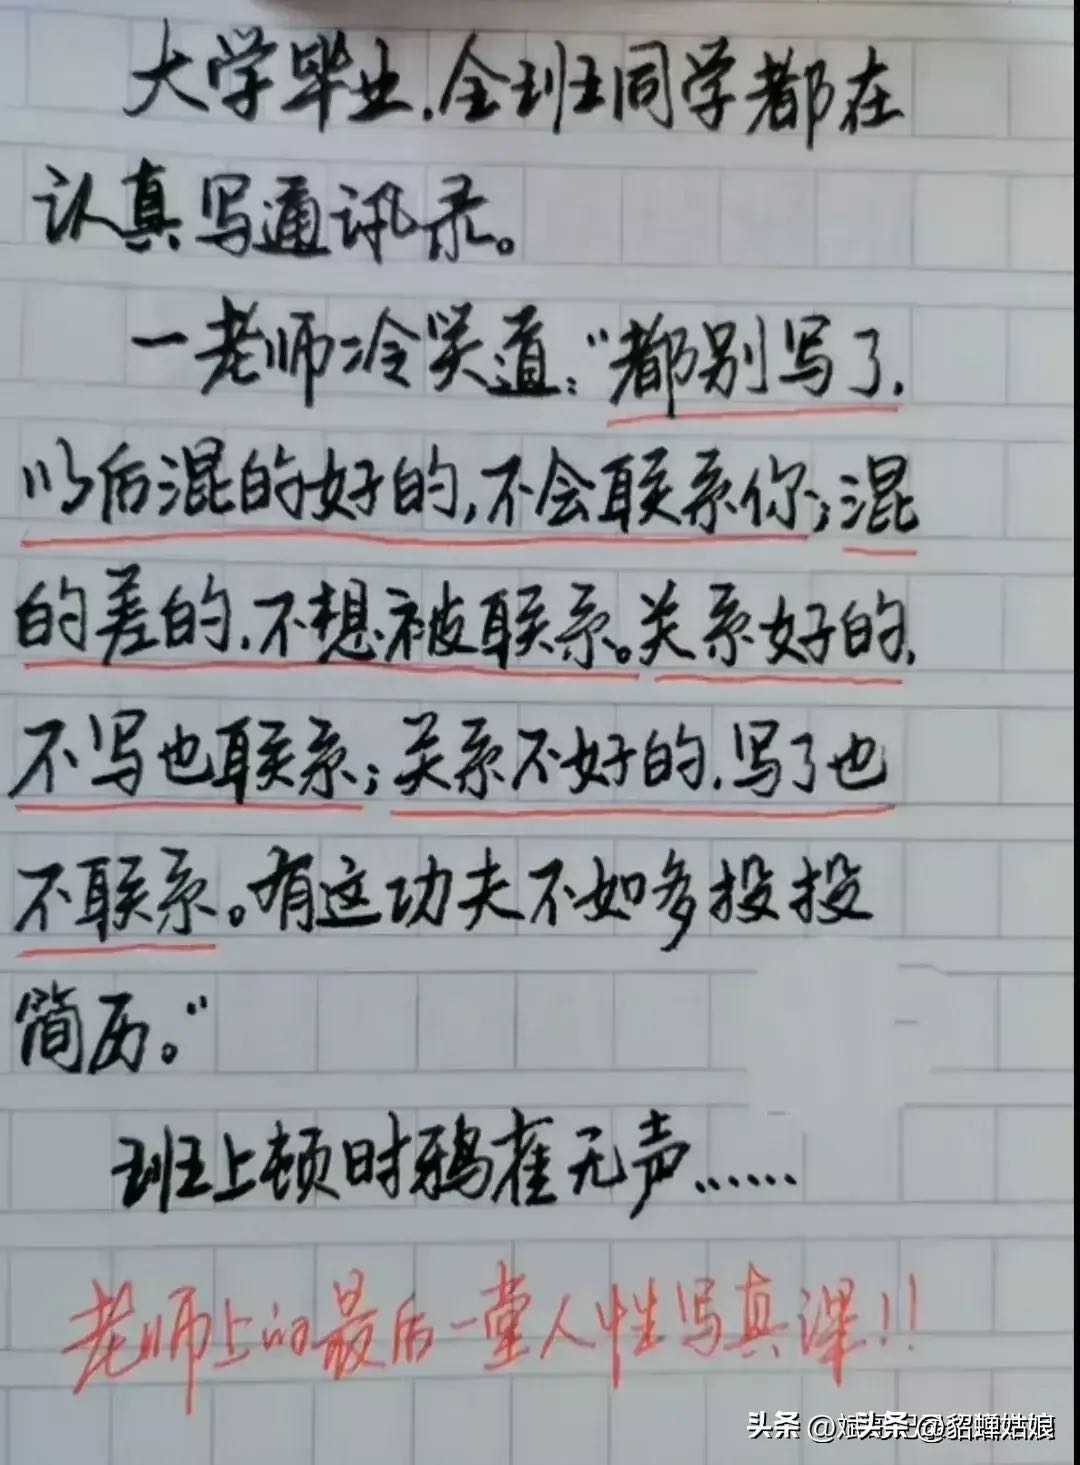 大学毕业,全班同学都在
认真写通讯录。
一老师冷笑道:“都别写了,
以后混的好的,不会联系你;混
的差的,不想被联系。关系好的,
不写也联系;关系不好的,写了也
不联系。有这功夫不如多投投
简历。”
班上顿时鸦雀无声……
老师上的最后一堂人性写真课!!
头条 @貂蝉姑娘